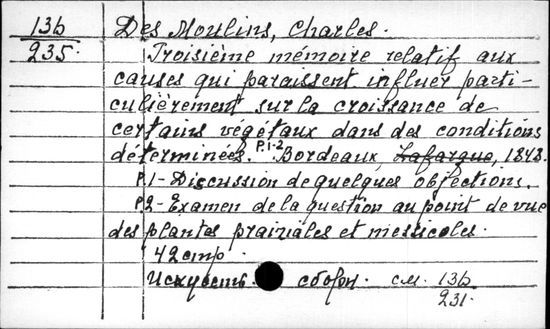 13b
235.
Des Moulins, Charles.
Troisième mémoire relatif aux
causes qui paraissent influer parti-
culièrement sur la croissance de
certains végétaux dans des conditions
déterminées. P.1-2 Bordeaux, Lafargue, 1848.
P.1 - Discussion de quelques objections.
P.2 - Examen de la question au point de vue
des plantes prairiales et messicoles.
42 стр.
Искусств. сборн. см. 13b
231.